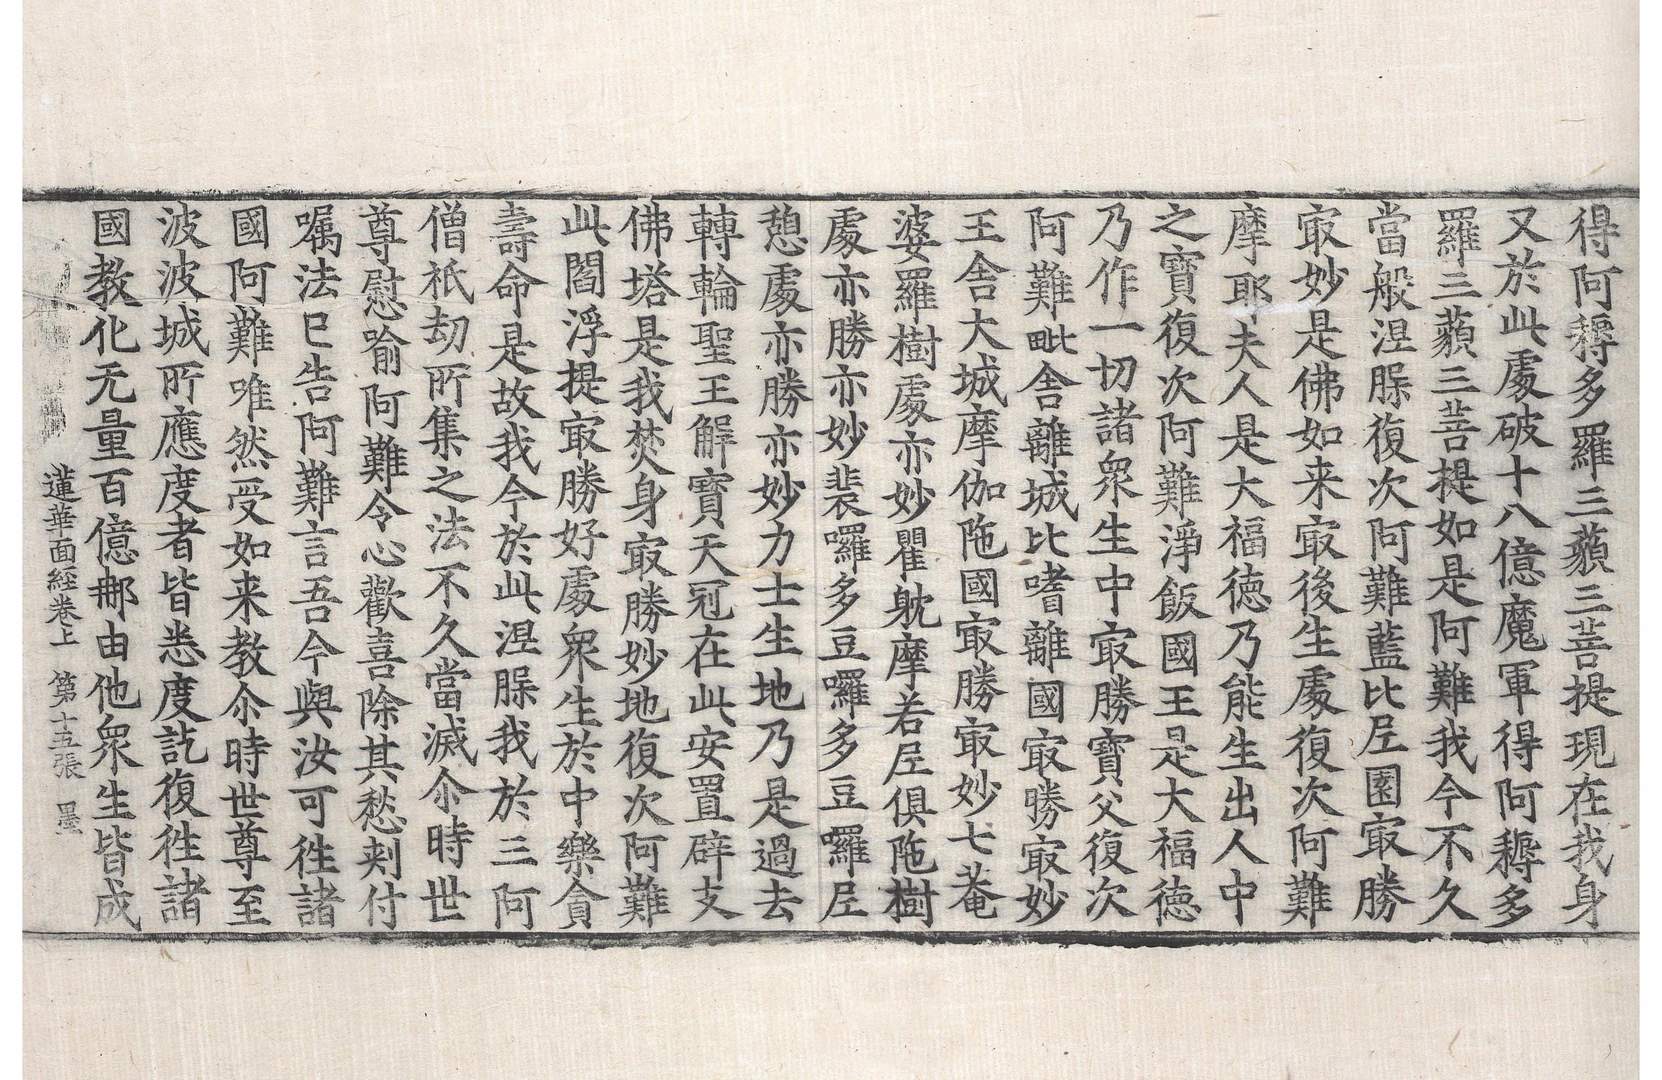 得阿耨多羅三藐三菩提現在我身
又於此處破十八億魔軍得阿耨多
羅三藐三菩提如是阿難我今不久
當般涅脲復次阿難藍比𡰱園㝡勝
㝡妙是佛如来㝡後生處復次阿難
摩耶夫人是大福德乃能生出人中
之寶復次阿難淨飯國王是大福德
乃作一切諸衆生中㝡勝寶父復次
阿難毗舍離城比嗜離國㝡勝㝡妙
王舍大城摩伽陁國㝡勝㝡妙七菴
婆羅樹處亦妙瞿躭摩若𡰱俱陁樹
處亦勝亦妙裴囉多豆囉多豆囉𡰱
憩處亦勝亦妙力士生地乃是過去
轉輪聖王解寶天冠在此安置辟支
佛塔是我焚身㝡勝妙地復次阿難
此閻浮提㝡勝好處衆生於中樂貪
壽命是故我今於此涅脲我於三阿
僧祇劫所集之法不久當滅尒時世
尊慰喻阿難令心歡喜除其愁刾付
嘱法已告阿難言吾今與汝可徃諸
國阿難唯然受如来教尒時世尊至
波波城所應度者皆悉度訖復徃諸
國教化无量百億那由他衆生皆成
蓮華面経卷上 第十五張 墨